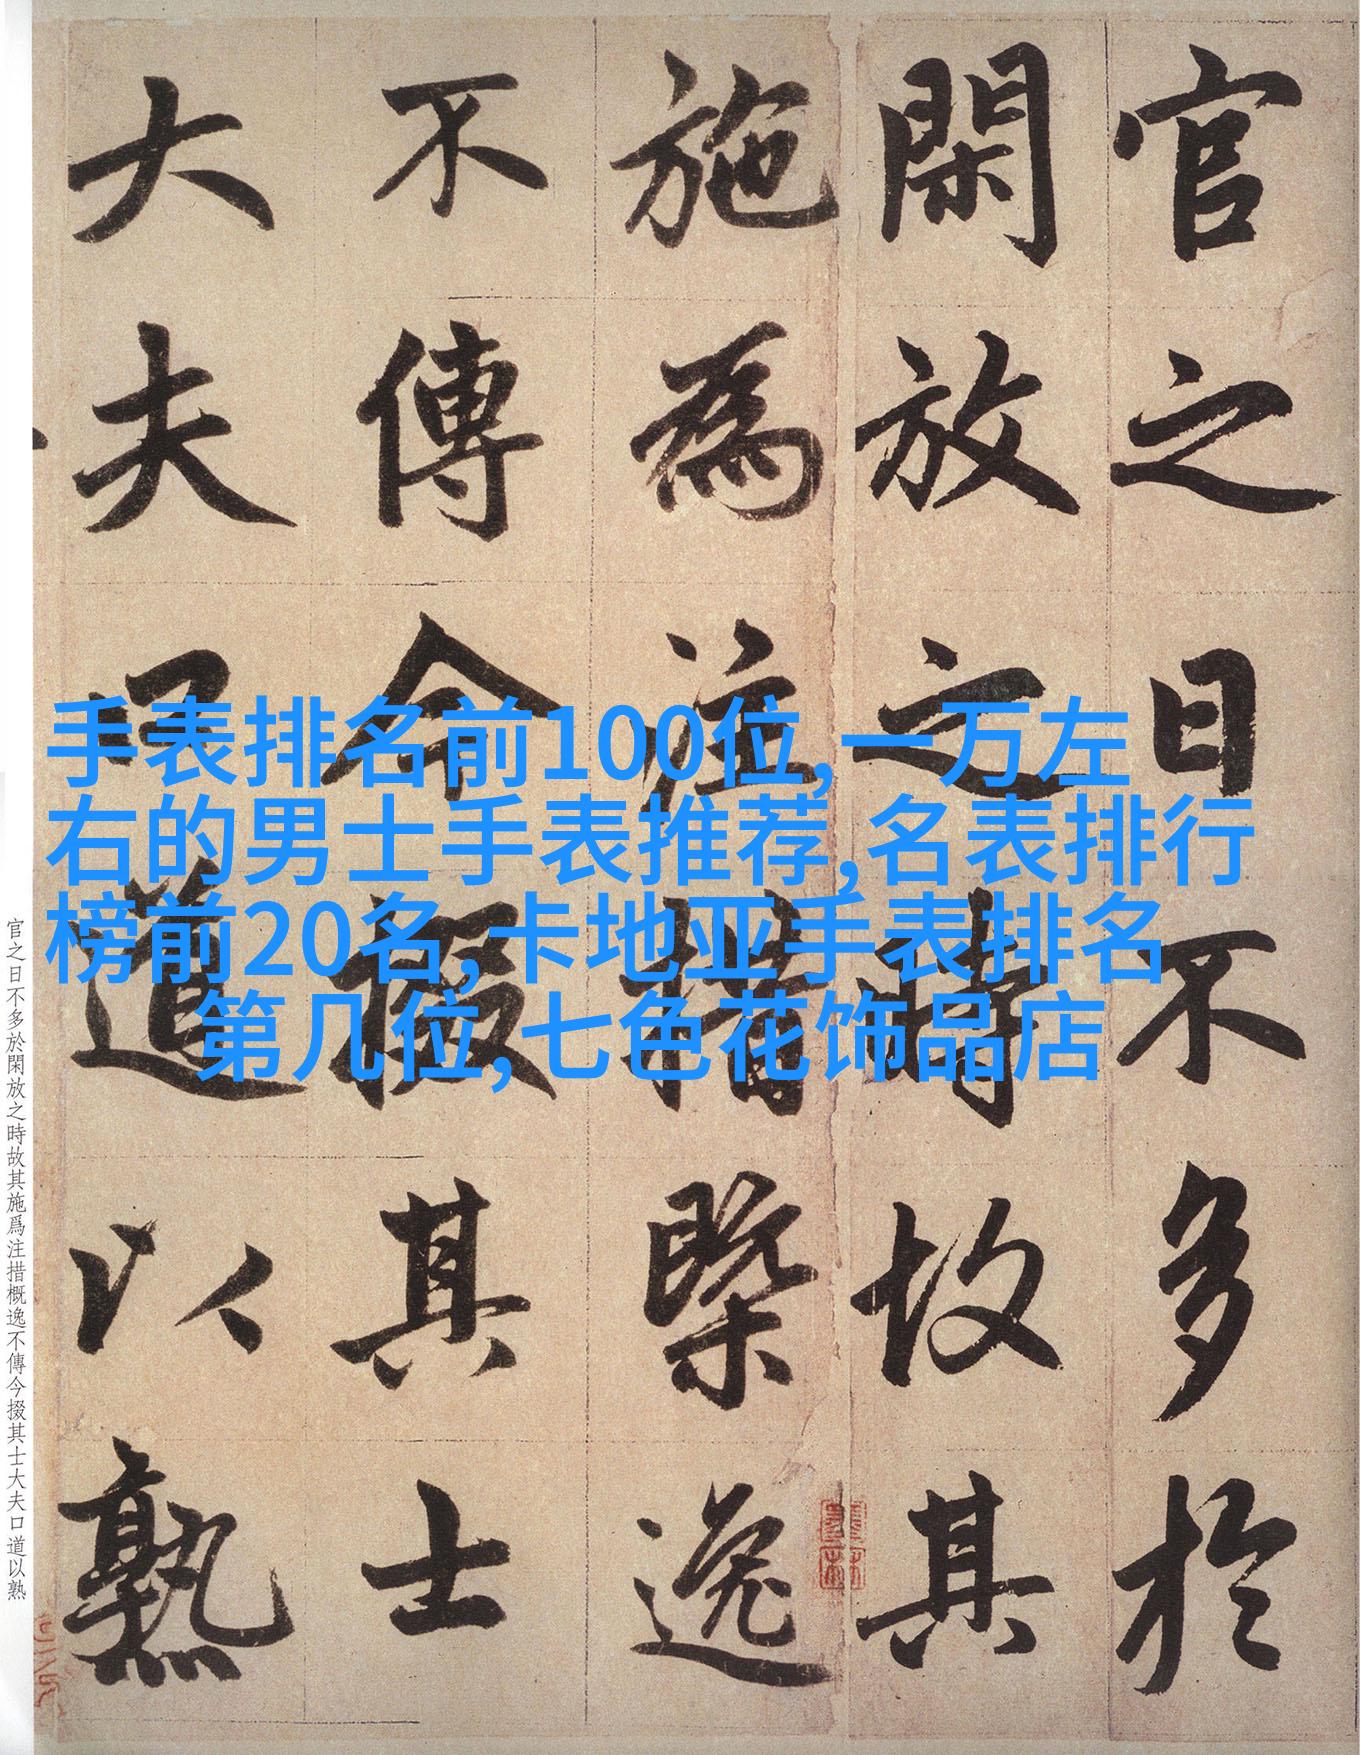 官之日不多於
閑放之時故其
施為注措槩逸
不傳今掇其士
大夫口道以熟
手表排名前100位,一万左
右的男士手表推荐,名表排行
榜前20名,卡地亚手表排名
第几位,七色花饰品店
官之日不多於閑放之時故其施爲注措概逸不傳今掇其士大夫口道以熟